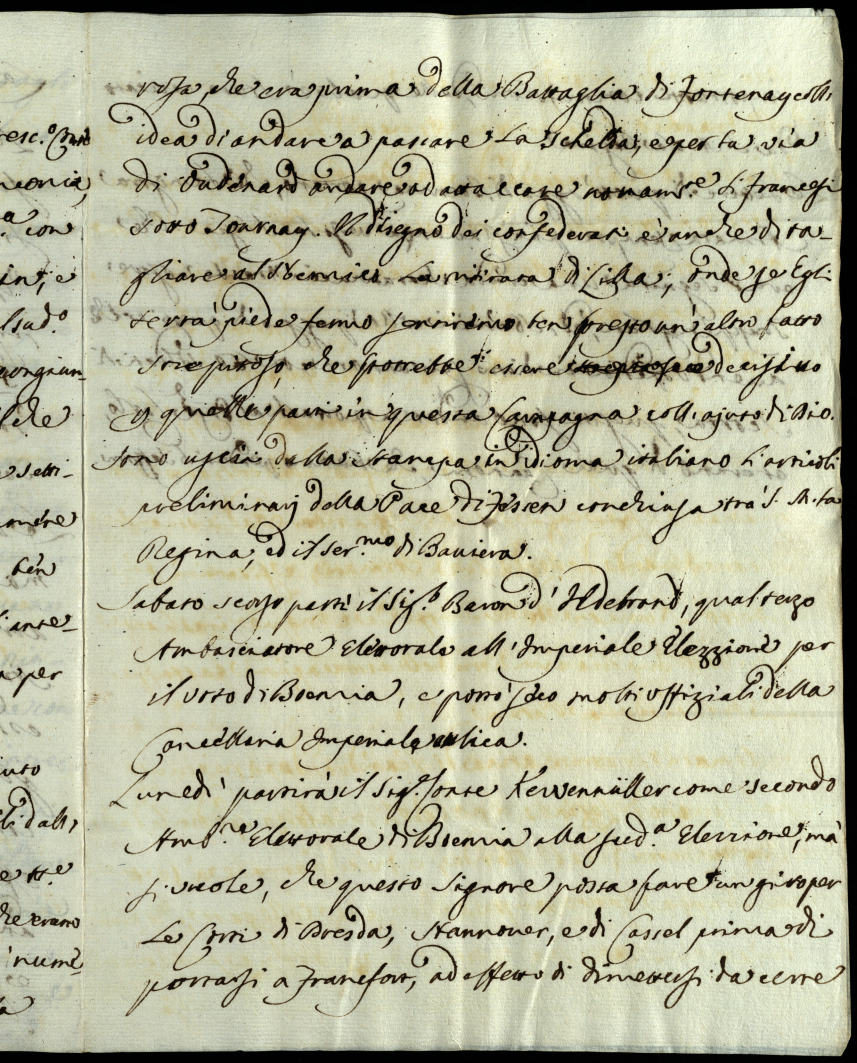 rosa, che era prima della Battaglia di Fontenay coll'
idea di andare a passare la Schelda, e per la via
di Oudenard andare ad attaccare novam.te li francesi
sotto Tournay. Il disegno dei confederati è anche di ta-
gliare all'Nemico la ritirata di Lilla; onde se Egli
terrà piede fermo sentiremo ben presto un'altro fatto
strepitoso, che potrebbe essere decisivo
quelle parti in questa Campagna coll'ajuto di Dio.
Sono usciti dalla stampa in idioma italiano li articoli
preliminarj della Pace di Fiessen conchiusa trà S. M. la
Regina, ed il Ser.mo di Baviera.
Sabato scorso partì il Sig.r Baron d'Ildebrand, qual terzo
Ambasciatore Elettorale all'Imperiale Elezzione per
il voto di Boemia, e portò seco molti uffiziali della
Cancellaria Imperiale aulica.
Lunedì partirà il Sig.r Conte Kevenmüller come secondo
Amb.re Elettorale di Boemia alla sud.a Elezzione, mà
si vuole, che questo Signore possa fare un giro per
le Corti di Dresda, Hannover, e di Cassel prima di
portarsi a Francfort, ad effetto di dimettersi da certe
resc.o
monia,
.a con
int, e
l sud.o
che
setti-
ben
ante-
a per
dall'
che erano